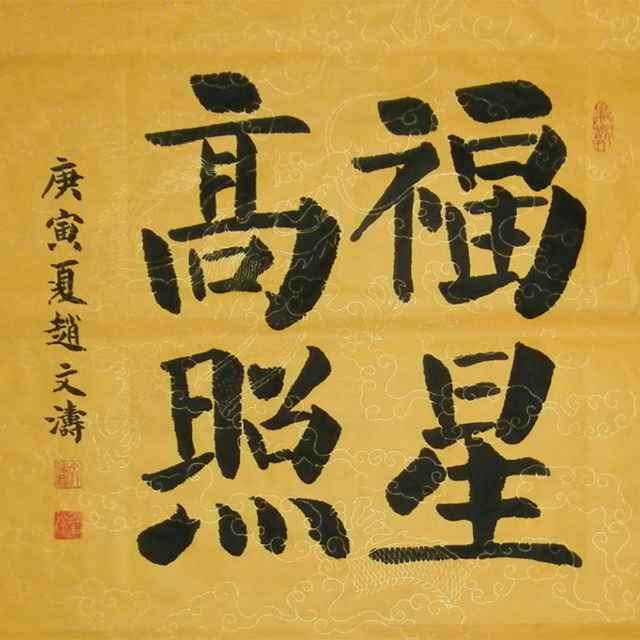 福星
高照
庚寅夏趙文濤